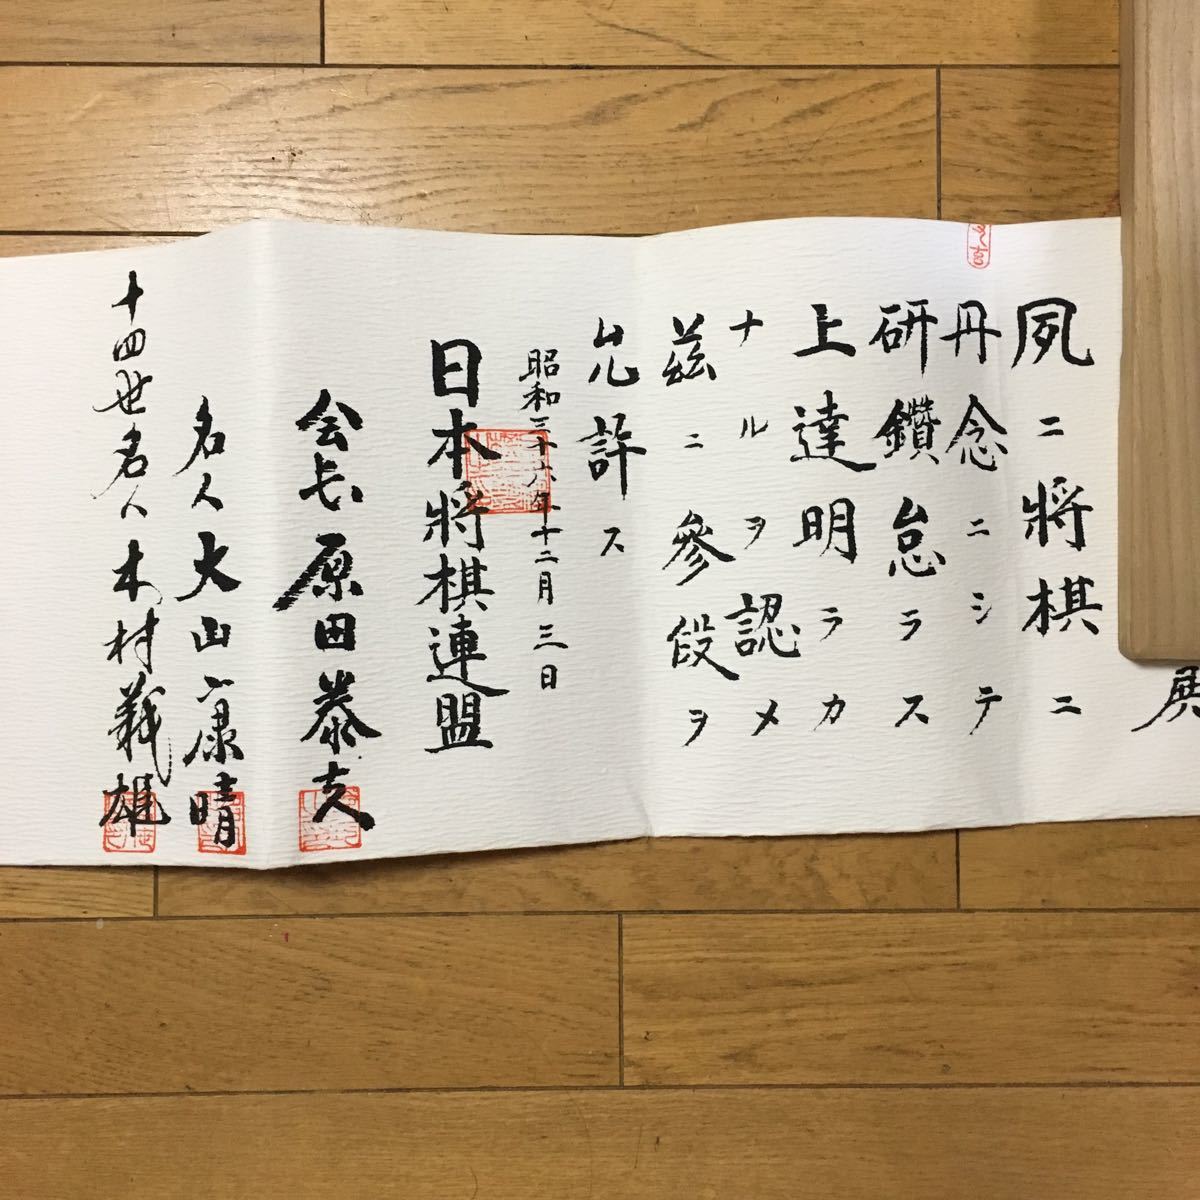 夙ニ將棋ニ
丹念ニシテ
研鑽怠ラス
上達明ラカ
ナルヲ認メ
茲ニ參段ヲ
允許ス
昭和三十六年十二月三日
日本將棋連盟
会長原田泰夫
名人大山康晴
十四世名人木村義雄